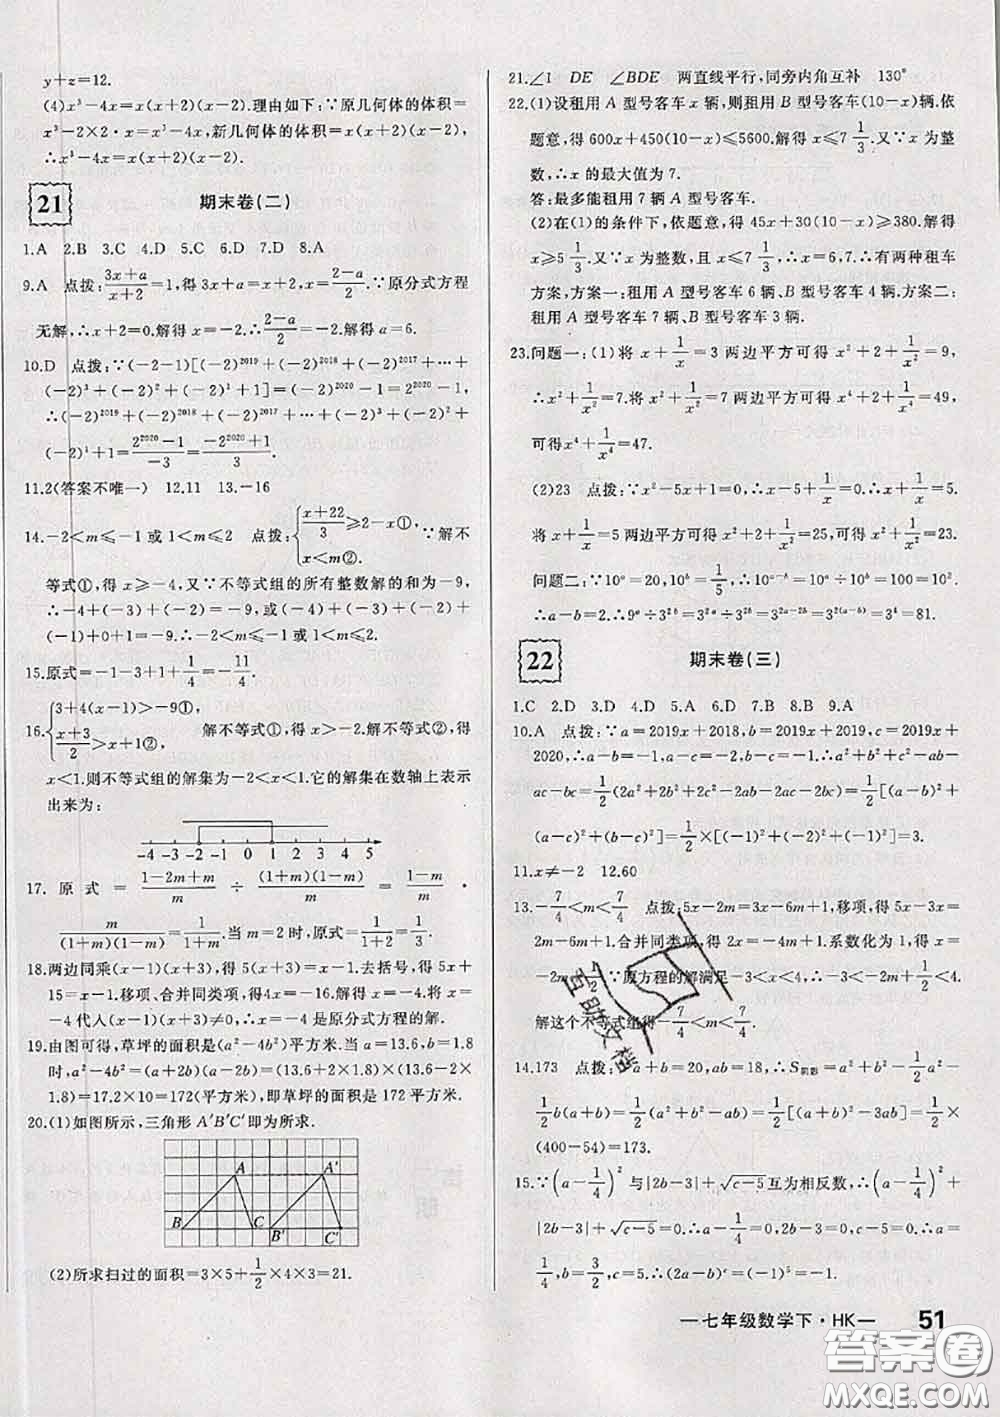 y+z=12.
(4)x³-4x=x(x+2)(x-2).理由如下:∵原几何体的体积=
x³-2×2·x=x³-4x,新几何体的体积=x(x+2)(x-2).
∴x³-4x=x(x+2)(x-2).
21 期末卷(二)
1.A 2.B 3.C 4.D 5.C 6.D 7.D 8.A
9.A 点拨:(3x+a)/(x+2)=1,得3x+a=x+2,x=(2-a)/2.∵原分式方程
无解,∴x+2=0.解得 x=-2.∴(2-a)/2=-2.解得 a=6.
10.D 点拨:∵(-2-1)[(-2)²⁰¹⁹+(-2)²⁰¹⁸+(-2)²⁰¹⁷+…+
(-2)³+(-2)²+(-2)¹+1]=(-2)²⁰²⁰-1=2²⁰²⁰-1,
∴(-2)²⁰¹⁹+(-2)²⁰¹⁸+(-2)²⁰¹⁷+…+(-2)³+(-2)²+
(-2)¹+1=(2²⁰²⁰-1)/(-3)=(-2²⁰²⁰+1)/3.
11.2(答案不唯一) 12.11 13.-16
14.-2<m≤-1或1<m≤2 点拨:{(x+22)/3≥2-x①, x<m②. ∵解不
等式①,得 x≥-4,又∵不等式组的所有整数解的和为-9,
∴-4+(-3)+(-2)=-9或-4+(-3)+(-2)+
(-1)+0+1=-9.∴-2<m≤-1或1<m≤2.
15.原式=-1-3+1+1/4=-11/4.
16.{3+4(x-1)>-9①, (x+3)/2>x+1②, 解不等式①,得x>-2.解不等式②,得
x<1.则不等式组的解集为-2<x<1.它的解集在数轴上表示
出来为:
-4 -3 -2 -1 0 1 2 3 4 5
17.原式=(1-2m+m)/m÷((1+m)(1-m))/m=(1-m)/m·
m/((1+m)(1-m))=1/(1+m).当m=2时,原式=1/(1+2)=1/3.
18.两边同乘(x-1)(x+3),得5(x+3)=x-1.去括号,得5x+
15=x-1.移项、合并同类项,得4x=-16.解得x=-4.将x=
-4代入(x-1)(x+3)≠0,∴x=-4是原分式方程的解.
19.由图可得,草坪的面积是(a²-4b²)平方米.当a=13.6,b=1.8
时,a²-4b²=(a+2b)(a-2b)=(13.6+2×1.8)×(13.6-2×
1.8)=17.2×10=172(平方米),即草坪的面积是172平方米.
20.(1)如图所示,三角形A′B′C′即为所求.
A A′
B C B′ C′
(2)所求扫过的面积=3×5+1/2×4×3=21.
21.∠1 DE ∠BDE 两直线平行,同旁内角互补 130°
22.(1)设租用A型号客车x辆,则租用B型号客车(10-x)辆.依
题意,得600x+450(10-x)≤5600.解得x≤7 1/3.又∵x为整
数,∴x的最大值为7.
答:最多能租用7辆A型号客车.
(2)在(1)的条件下,依题意,得45x+30(10-x)≥380.解得
x≥5 1/3.又∵x为整数,且x≤7 1/3,∴x=6或7.∴有两种租车
方案,方案一:租用A型号客车6辆、B型号客车4辆.方案二:
租用A型号客车7辆、B型号客车3辆.
23.问题一:(1)将x+1/x=3两边平方可得x²+2+1/x²=9,
∴x²+1/x²=7.将x²+1/x²=7两边平方可得x⁴+2+1/x⁴=49,
可得x⁴+1/x⁴=47.
(2)23 点拨:∵x²-5x+1=0,∴x-5+1/x=0.∴x+1/x=5.
将x+1/x=5两边平方可得x²+2+1/x²=25,可得x²+1/x²=23.
问题二:∵10ᵃ=20,10ᵇ=1/5,∴10ᵃ⁻ᵇ=10ᵃ÷10ᵇ=100=10².
∴a-b=2.∴9ᵃ÷3²ᵇ=3²ᵃ÷3²ᵇ=3²ᵃ⁻²ᵇ=3²⁽ᵃ⁻ᵇ⁾=3⁴=81.
22 期末卷(三)
1.C 2.D 3.D 4.D 5.A 6.D 7.B 8.B 9.A
10.A 点拨:∵a=2019x+2018,b=2019x+2019,c=2019x+
2020,∴a-b=-1,a-c=-2,b-c=-1.∴a²+b²+c²-ab-
ac-bc=1/2(2a²+2b²+2c²-2ab-2ac-2bc)=1/2[(a-b)²+
(a-c)²+(b-c)²]=1/2×[(-1)²+(-2)²+(-1)²]=3.
11.x≠-2 12.60
13.-7/4<m<7/4 点拨:5x-2m=3x-6m+1,移项,得5x-3x=
2m-6m+1.合并同类项,得2x=-4m+1.系数化为1,得x=
-2m+1/2.∵原方程的解满足-3<x<4,∴-3<-2m+1/2<4.
解这个不等式组得-7/4<m<7/4.
14.173 点拨:∵a+b=20,ab=18,∴S阴影=a²+b²-1/2a²-
1/2b(a+b)=1/2(a²+b²-ab)=1/2[(a+b)²-3ab]=1/2×
(400-54)=173.
15.∵(a-1/4)²与|2b-3|+√(c-5)互为相反数,∴(a-1/4)²+
|2b-3|+√(c-5)=0.∴a-1/4=0,2b-3=0,c-5=0.∴a=
1/4,b=3/2,c=5.∴(2a-b)ᶜ=(-1)⁵=-1.
—七年级数学下·HK— 51
互助文档
答案圈
MXQE.COM